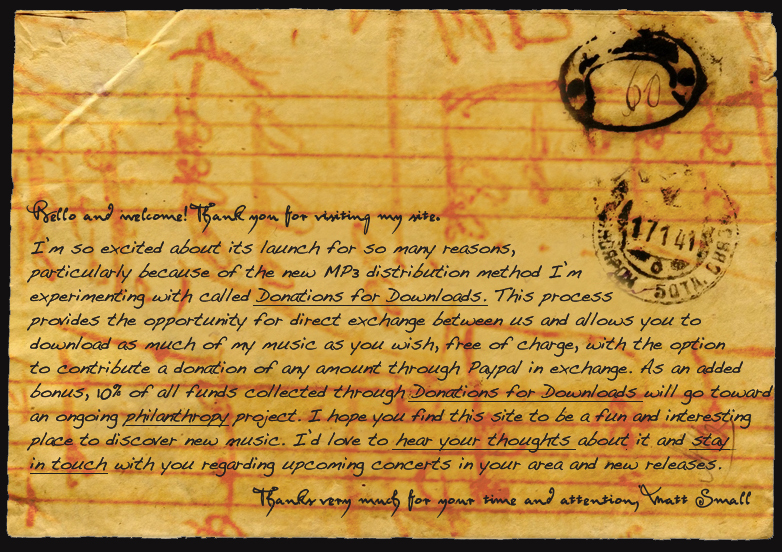 60
17 1 41
Hello and welcome! Thank you for visiting my site.
I'm so excited about its launch for so many reasons,
particularly because of the new MP3 distribution method I'm
experimenting with called Donations for Downloads. This process
provides the opportunity for direct exchange between us and allows you to
download as much of my music as you wish, free of charge, with the option
to contribute a donation of any amount through Paypal in exchange. As an added
bonus, 10% of all funds collected through Donations for Downloads will go toward
an ongoing philanthropy project. I hope you find this site to be a fun and interesting
place to discover new music. I'd love to hear your thoughts about it and stay
in touch with you regarding upcoming concerts in your area and new releases.
Thanks very much for your time and attention, Matt Small